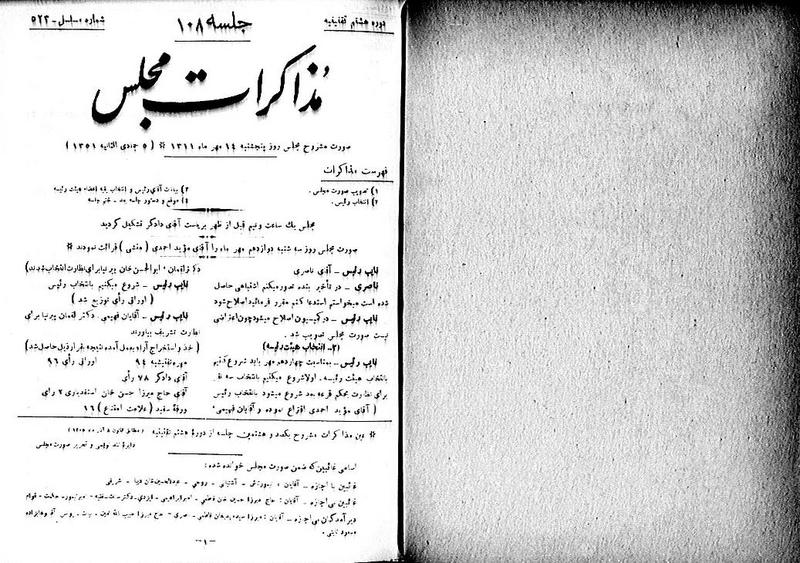 دوره هشتم تقنینیه
جلسه ۱۰۸
شماره مسلسل - ۵۲۳
مذاکرات مجلس
صورت مشروح مجلس روز پنجشنبه ۱۴ مهر ماه ۱۳۱۱ * ( ۵ جمادی الثانیه ۱۳۵۱ )
فهرست مذاکرات
۱) تصویب صورت مجلس .
۲) انتخاب رئیس .
۳) بیانات آقای رئیس و انتخاب بقیه اعضاء هیئت رئیسه
۴) موقع و دستور جلسه بعد - ختم جلسه
مجلس یك ساعت ونیم قبل از ظهر بریاست آقای دادگر تشکیل گردید
صورت مجلس روز سه شنبه دوازدهم مهر ماه را آقای مؤید احمدی ( منشی ) قرائت نمودند *
نایب رئیس - آقای ناصری
ناصری - در تأخیر بنده تصور میکنم اشتباهی حاصل
شده است میخواستم استدعا کنم مقرر فرمائید اصلاح شود
نایب رئیس - در کمیسیون اصلاح میشود چون اعتراضی
نیست صورت مجلس تصویب شد .
(۲- انتخاب هیئت رئیسه)
نایب رئیس - بمناسبت چهاردهم مهر باید شروع کنیم
بانتخاب هیئت رئیسه . اولا شروع میکنیم بانتخاب سه نفر
برای نظارت بحکم قرعه بعد شروع میشود بانتخاب رئیس
( آقای مؤید احمدی اقتراع نموده و آقایان فهیمی .
دکتر لقمان - ابوالحسن خان پیرنیا برای نظارت انتخاب شدند)
نایب رئیس - شروع میکنیم بانتخاب رئیس
( اوراق رأی توزیع شد )
نایب رئیس - آقایان فهیمی . دکتر لقمان پیرنیا برای
نظارت تشریف بیاورند
( اخذ و استخراج آراء بعمل آمده نتیجه بقرار ذیل حاصل شد)
مهره تفتیشیه ۹۴ اوراق رأی ۹۶
آقای دادگر ۷۸ رأی
آقای حاج میرزا حسن خان اسفندیاری ۲ رای
ورقه سفید ( علامت امتناع ) ۱۶
* عین مذاکرات مشروح یکصد و هشتمین جلسه از دورهٔ هشتم تقنینیه
دایرهٔ تند نویسی و تحریر صورت مجلس
اسامی غائبین که ضمن صورت مجلس خوانده شده :
غائبین با اجازه - آقایان : تیمورتاش - آشتیانی - روحی - عبدالحسین خان دیبا - شریفی
غائبین بی اجازه - آقایان : حاج میرزا حسین خان فاطمی - امیر ابراهیمی - ایزدی - دکتر
دیر آمدگان بی اجازه - آقایان : میرزا فاطمی - ناصری - حاج میرزا حبیب الله امین - بیات - آقا وهابزاده
مسعود ثابتی .
- ۱ -